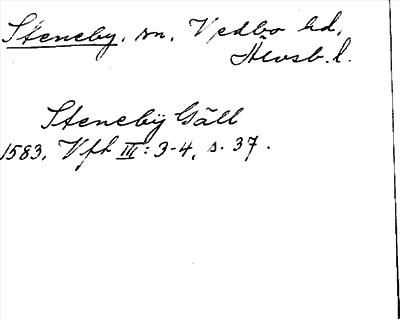 Steneby, sn, Vedbo hd,
Älvsb. l.
Steneby Gäll
1583, Vfh III: 3-4, s. 37.